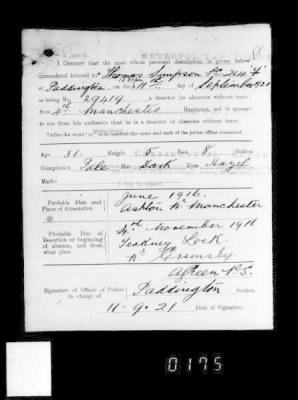 I CERTIFY that the man whose personal description is given below
surrendered himself to * Thomas Simpson P.C. 244 "F"
at Paddington on the 11th day of September 1921
as being No. 29419 a deserter (or absentee without leave)
from 4th Manchester Regiment, and it appears
to me from his confession that he is a deserter or absentee without leave.
* After the word "to" to be inserted the name and rank of the police officer concerned.
Age 31 Height 5 Feet 8 Inches
Complexion Pale Hair Dark Eyes Hazel
Marks
Probable Date and
Place of Attestation
June 1916.
Ashton Nr Manchester
Probable Date of
Desertion or beginning
of absence, and from
what place
4th November 1916
Lock.
Nr Grimsby
Signature of Officer of Police
in charge of
A Green P.S.
Paddington Station
11-9-21 Date of Signature.
0175